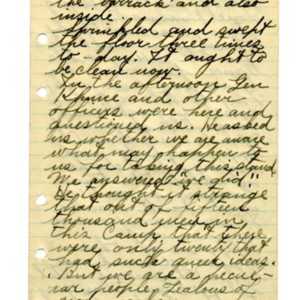 the barrack and also
inside.
sprinkled and swept
the floor three times
to-day. It ought to
be clean now.
In the afternoon Gen
and other
officers were here and
questioned us. He asked
us whether we are aware
what may happen to
us for taking this stand.
We answered "we are!"
He thought it strange
that out of
thousand men in
this Camp that there
were only twenty that
had such queer ideas.
But we are a pecul-
iar people, Zealous of